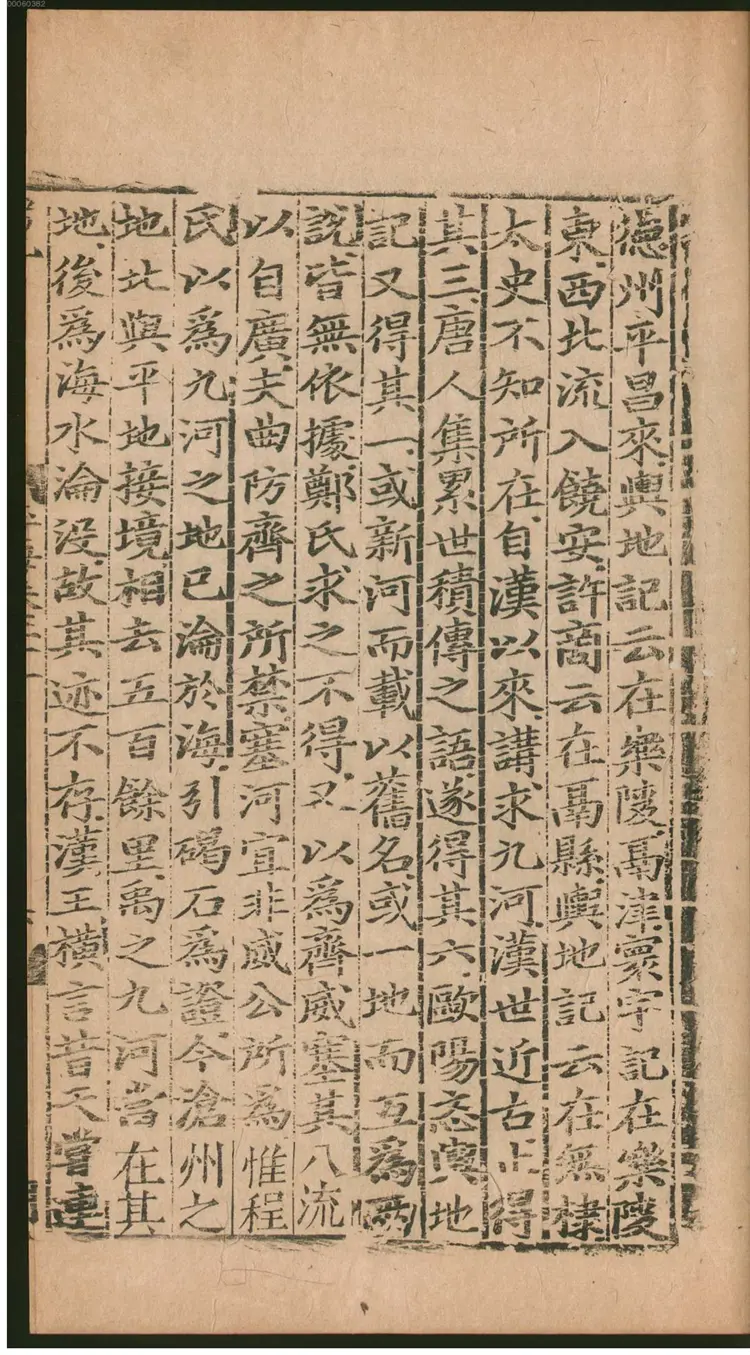 00060382
德州平昌來輿地記云在樂陵鬲津寰宇記在樂陵
東西北流入饒安許商云在鬲縣輿地記云在無棣
太史不知所在自漢以來講求九河漢世近古止得
其三唐人集累世積傳之語遂得其六歐陽忞輿地
記又得其一或新河而載以舊名或一地而互爲兩
說皆無依據鄭氏求之不得又以爲齊威塞其八流
以自廣夫曲防齊之所禁塞河宜非威公所爲惟程
氏以爲九河之地已淪於海引碣石爲證今滄州之
地北與平地接境相去五百餘里禹之九河當在其
地後爲海水淪沒故其迹不存漢王橫言昔天嘗連